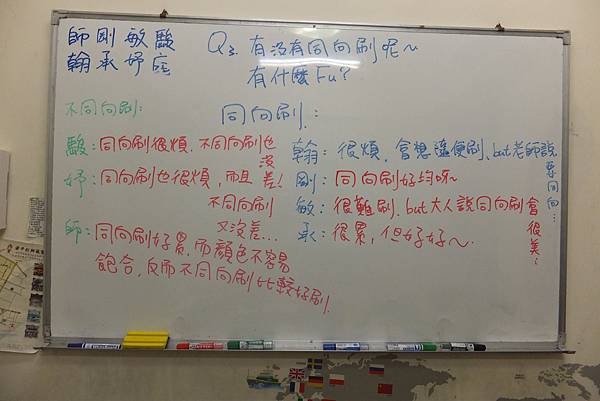 師剛敏駿
翰承妤庭
Q3. 有沒有同向刷呢~
有什麼Fu?
不同向刷:
駿:同向刷很煩,不同向刷也
沒
差!
妤:同向刷也很煩,而且
不同向刷
又沒差...
師:同向刷好累,而顏色不容易
飽合,反而不同向刷比較好刷.
同向刷:
翰:很煩,會想隨便刷,but老師說
要同向...
剛:同向刷好均呀~
敏:很難刷,but大人說同向刷會
很美~
承:很累,但好好~